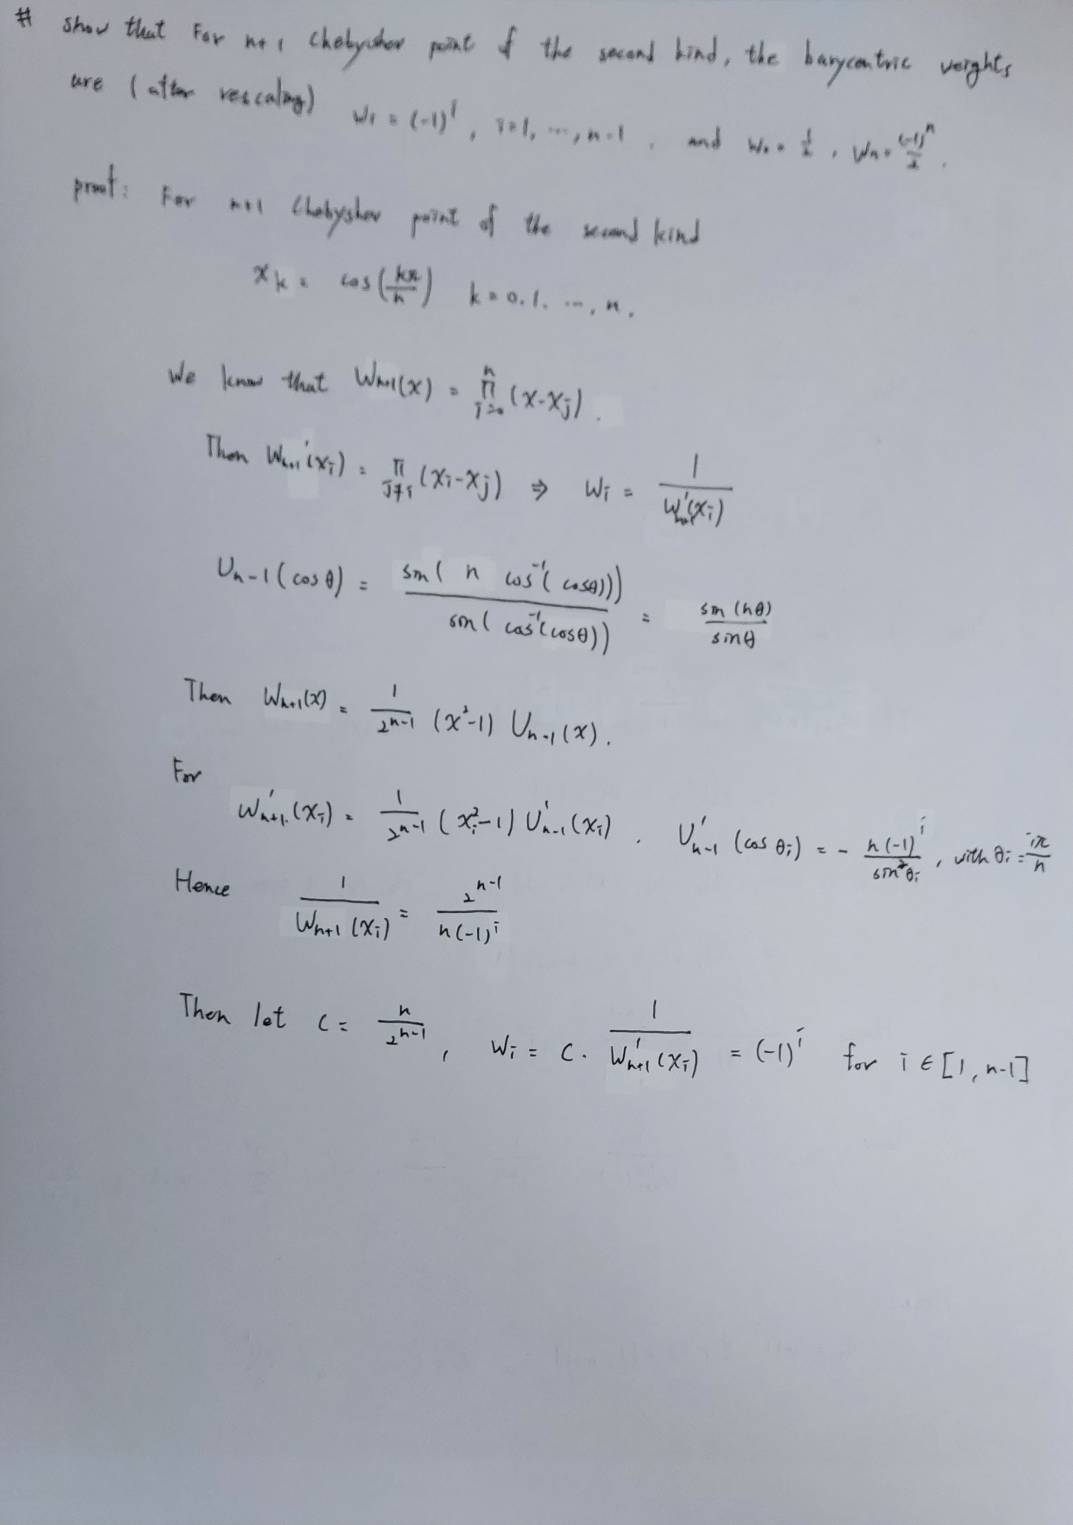 # show that For n+1 Chebyshev point of the second kind, the barycentric weights
are (after rescaling) Wi = (-1)^i, i=1, ..., n-1, and W₀ = 1/2, Wn = (-1)^n/2.
proof: For n+1 Chebyshev point of the second kind
x_k = cos(kπ/n) k=0,1, ..., n.
We know that W_{n+1}(x) = ∏_{j=0}^{n} (x-x_j).
Then W'_{n+1}(x_i) = ∏_{j≠i} (x_i-x_j) ⇒ W_i = 1/W'_{n+1}(x_i)
U_{n-1}(cosθ) = sin(n cos⁻¹(cosθ))/sin(cos⁻¹(cosθ)) = sin(nθ)/sinθ
Then W_{n+1}(x) = 1/2^{n-1} (x²-1) U_{n-1}(x).
For
W'_{n+1}(x_i) = 1/2^{n-1} (x_i²-1) U'_{n-1}(x_i). U'_{n-1}(cosθ_i) = - n(-1)^i/sin²θ_i, with θ_i = iπ/n
Hence 1/W_{n+1}(x_i) = 2^{n-1}/n(-1)^i
Then let C = n/2^{n-1}, W_i = C · 1/W'_{n+1}(x_i) = (-1)^i for i ∈ [1, n-1]